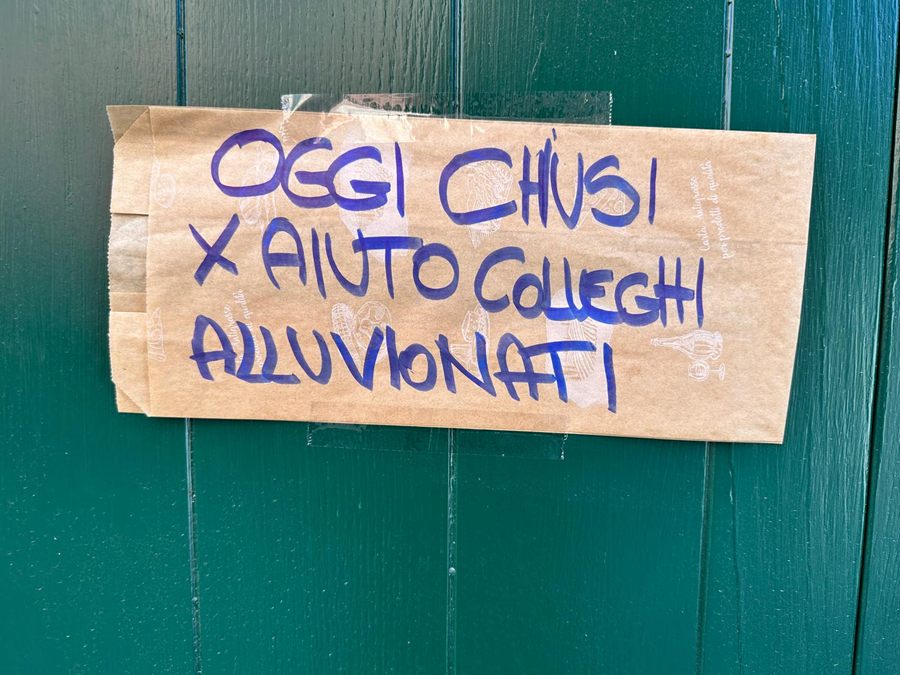 OGGI CHIUSI
X AIUTO COLLEGHI
ALLUVIONATI
per prodotti di qualità